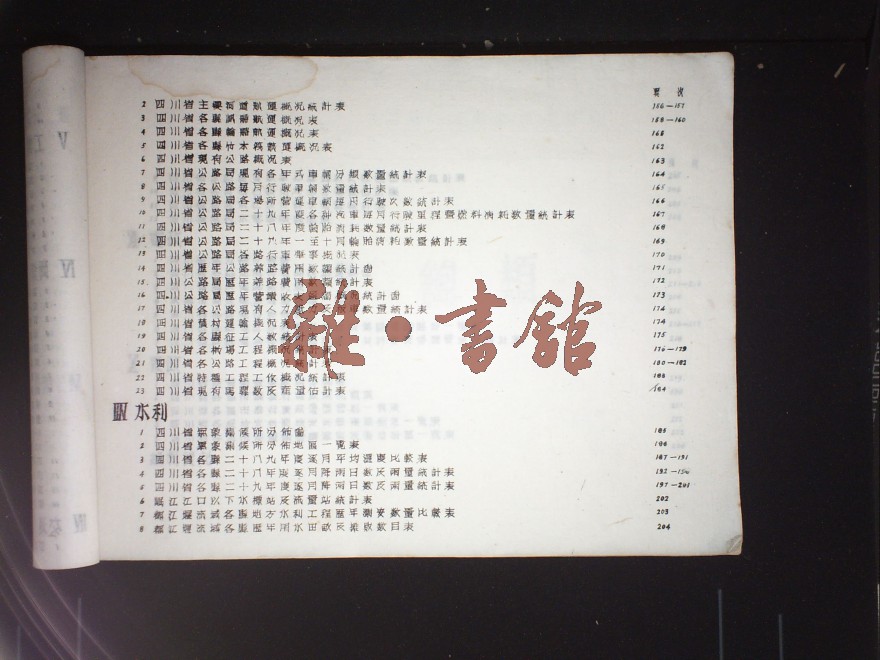 頁次
2 四川省主要河道航運概況統計表 156—157
3 四川省各縣航運概況表 158—160
4 四川省各縣輪船航運概況表 161
5 四川省各縣竹木筏航運概況表 162
6 四川省現有公路概況表 163
7 四川省公路局現有各年式車輛分類數量統計表 164
8 四川省公路局每月行駛車輛數量統計表 165
9 四川省公路局各場所營運車輛每月行駛次數統計表 166
10 四川省公路局二十九年度各種汽車每月行駛里程暨燃料消耗數量統計表 167
11 四川省公路局二十八年度輪胎消耗數量統計表 168
12 四川省公路局二十九年一至十月輪胎消耗數量統計表 169
13 四川省公路局各路行車肇事概況表 170
14 四川省歷年公路養路費用數額統計圖 171
15 四川省公路局歷年養路費用數額統計表 172
16 四川省公路局歷年營業收支概況統計圖 173
17 四川省公路局現有人力板車數量統計表 174
18 四川省驛運概況表 174
19 四川省各縣征工人數統計表 175
20 四川省機場工程概況統計表 176—179
21 四川省公路工程概況統計表 180—182
22 四川省特種工程工作概況統計表 183
23 四川省現有馬車數及產量估計表 184
Ⅶ 水利
1 四川省氣象測候所分佈圖 185
2 四川省氣象測候所分佈地區一覽表 186
3 四川省各縣二十八九年度逐月平均溫度比較表 187—191
4 四川省各縣二十八年度逐月降雨日數及雨量統計表 192—196
5 四川省各縣二十九年度逐月降雨日數及雨量統計表 197—201
6 岷江江口以下水標站及流量站統計表 202
7 都江堰流域各縣地方水利工程歷年測安數量比較表 203
8 都江堰流域各縣歷年用水田畝及推收數目表 204
雜·書館